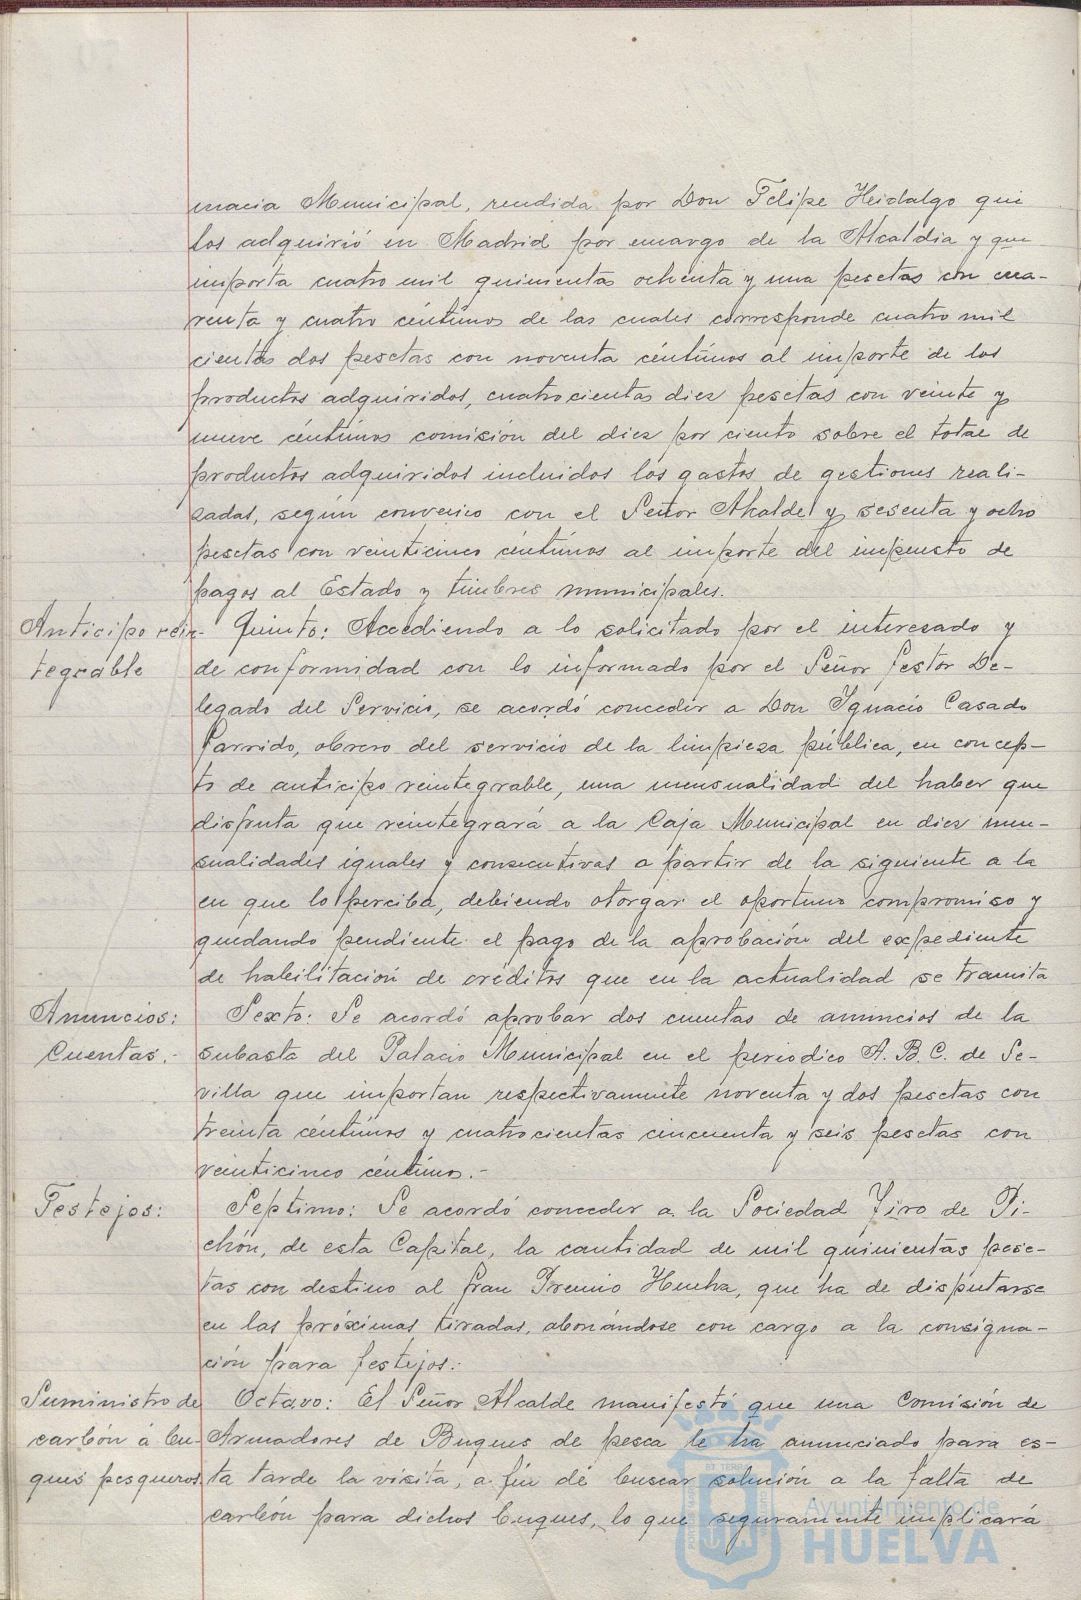 macia Municipal, rendida por Don Felipe Heidalgo que
los adquirió en Madrid por encargo de la Alcaldia y que
importa cuatro mil quinientas ochenta y una pesetas con cua-
renta y cuatro céntimos de las cuales corresponde cuatro mil
cientos dos pesetas con noventa céntimos al importe de los
productos adquiridos, cuatrocientas diez pesetas con veinte y
nueve céntimos comisión del diez por ciento sobre el total de
productos adquiridos incluidos los gastos de gestiones reali-
zadas, según convenio con el Señor Alcalde y sesenta y ocho
pesetas con veinticinco céntimos al importe del impuesto de
pagos al Estado y timbres municipales.
Anticipo rein-
tegrable
Quinto: Accediendo a lo solicitado por el interesado y
de conformidad con lo informado por el Señor Gestor De-
legado del Servicio, se acordó conceder a Don Ignacio Casado
Garrido, obrero del servicio de la limpieza pública, en concep-
to de anticipo reintegrable, una mensualidad del haber que
disfruta que reintegrará a la Caja Municipal en diez men-
sualidades iguales y consecutivas a partir de la siguiente a la
en que lo perciba, debiendo otorgar el oportuno compromiso y
quedando pendiente el pago de la aprobación del expediente
de habilitación de créditos que en la actualidad se tramita
Anuncios:
Cuentas.-
Sexto: Se acordó aprobar dos cuentas de anuncios de la
subasta del Palacio Municipal en el periodico A. B. C. de Se-
villa que importan respectivamente noventa y dos pesetas con
treinta céntimos y cuatrocientas cincuenta y seis pesetas con
veinticinco céntimos.-
Festejos:
Septimo: Se acordó conceder a la Sociedad Tiro de Pi-
chón, de esta Capital, la cantidad de mil quinientas pese-
tas con destino al Gran Premio Huelva, que ha de disputarse
en las próximas tiradas, abonándose con cargo a la consigna-
ción para festejos.-
Suministro de
carbón á bu-
ques pesqueros.
Octavo: El Señor Alcalde manifestó que una Comisión de
Armadores de Buques de pesca le ha anunciado para es-
ta tarde la visita, a fin de buscar solución a la falta de
carbón para dichos buques, lo que seguramente implicará
Ayuntamiento de
HUELVA